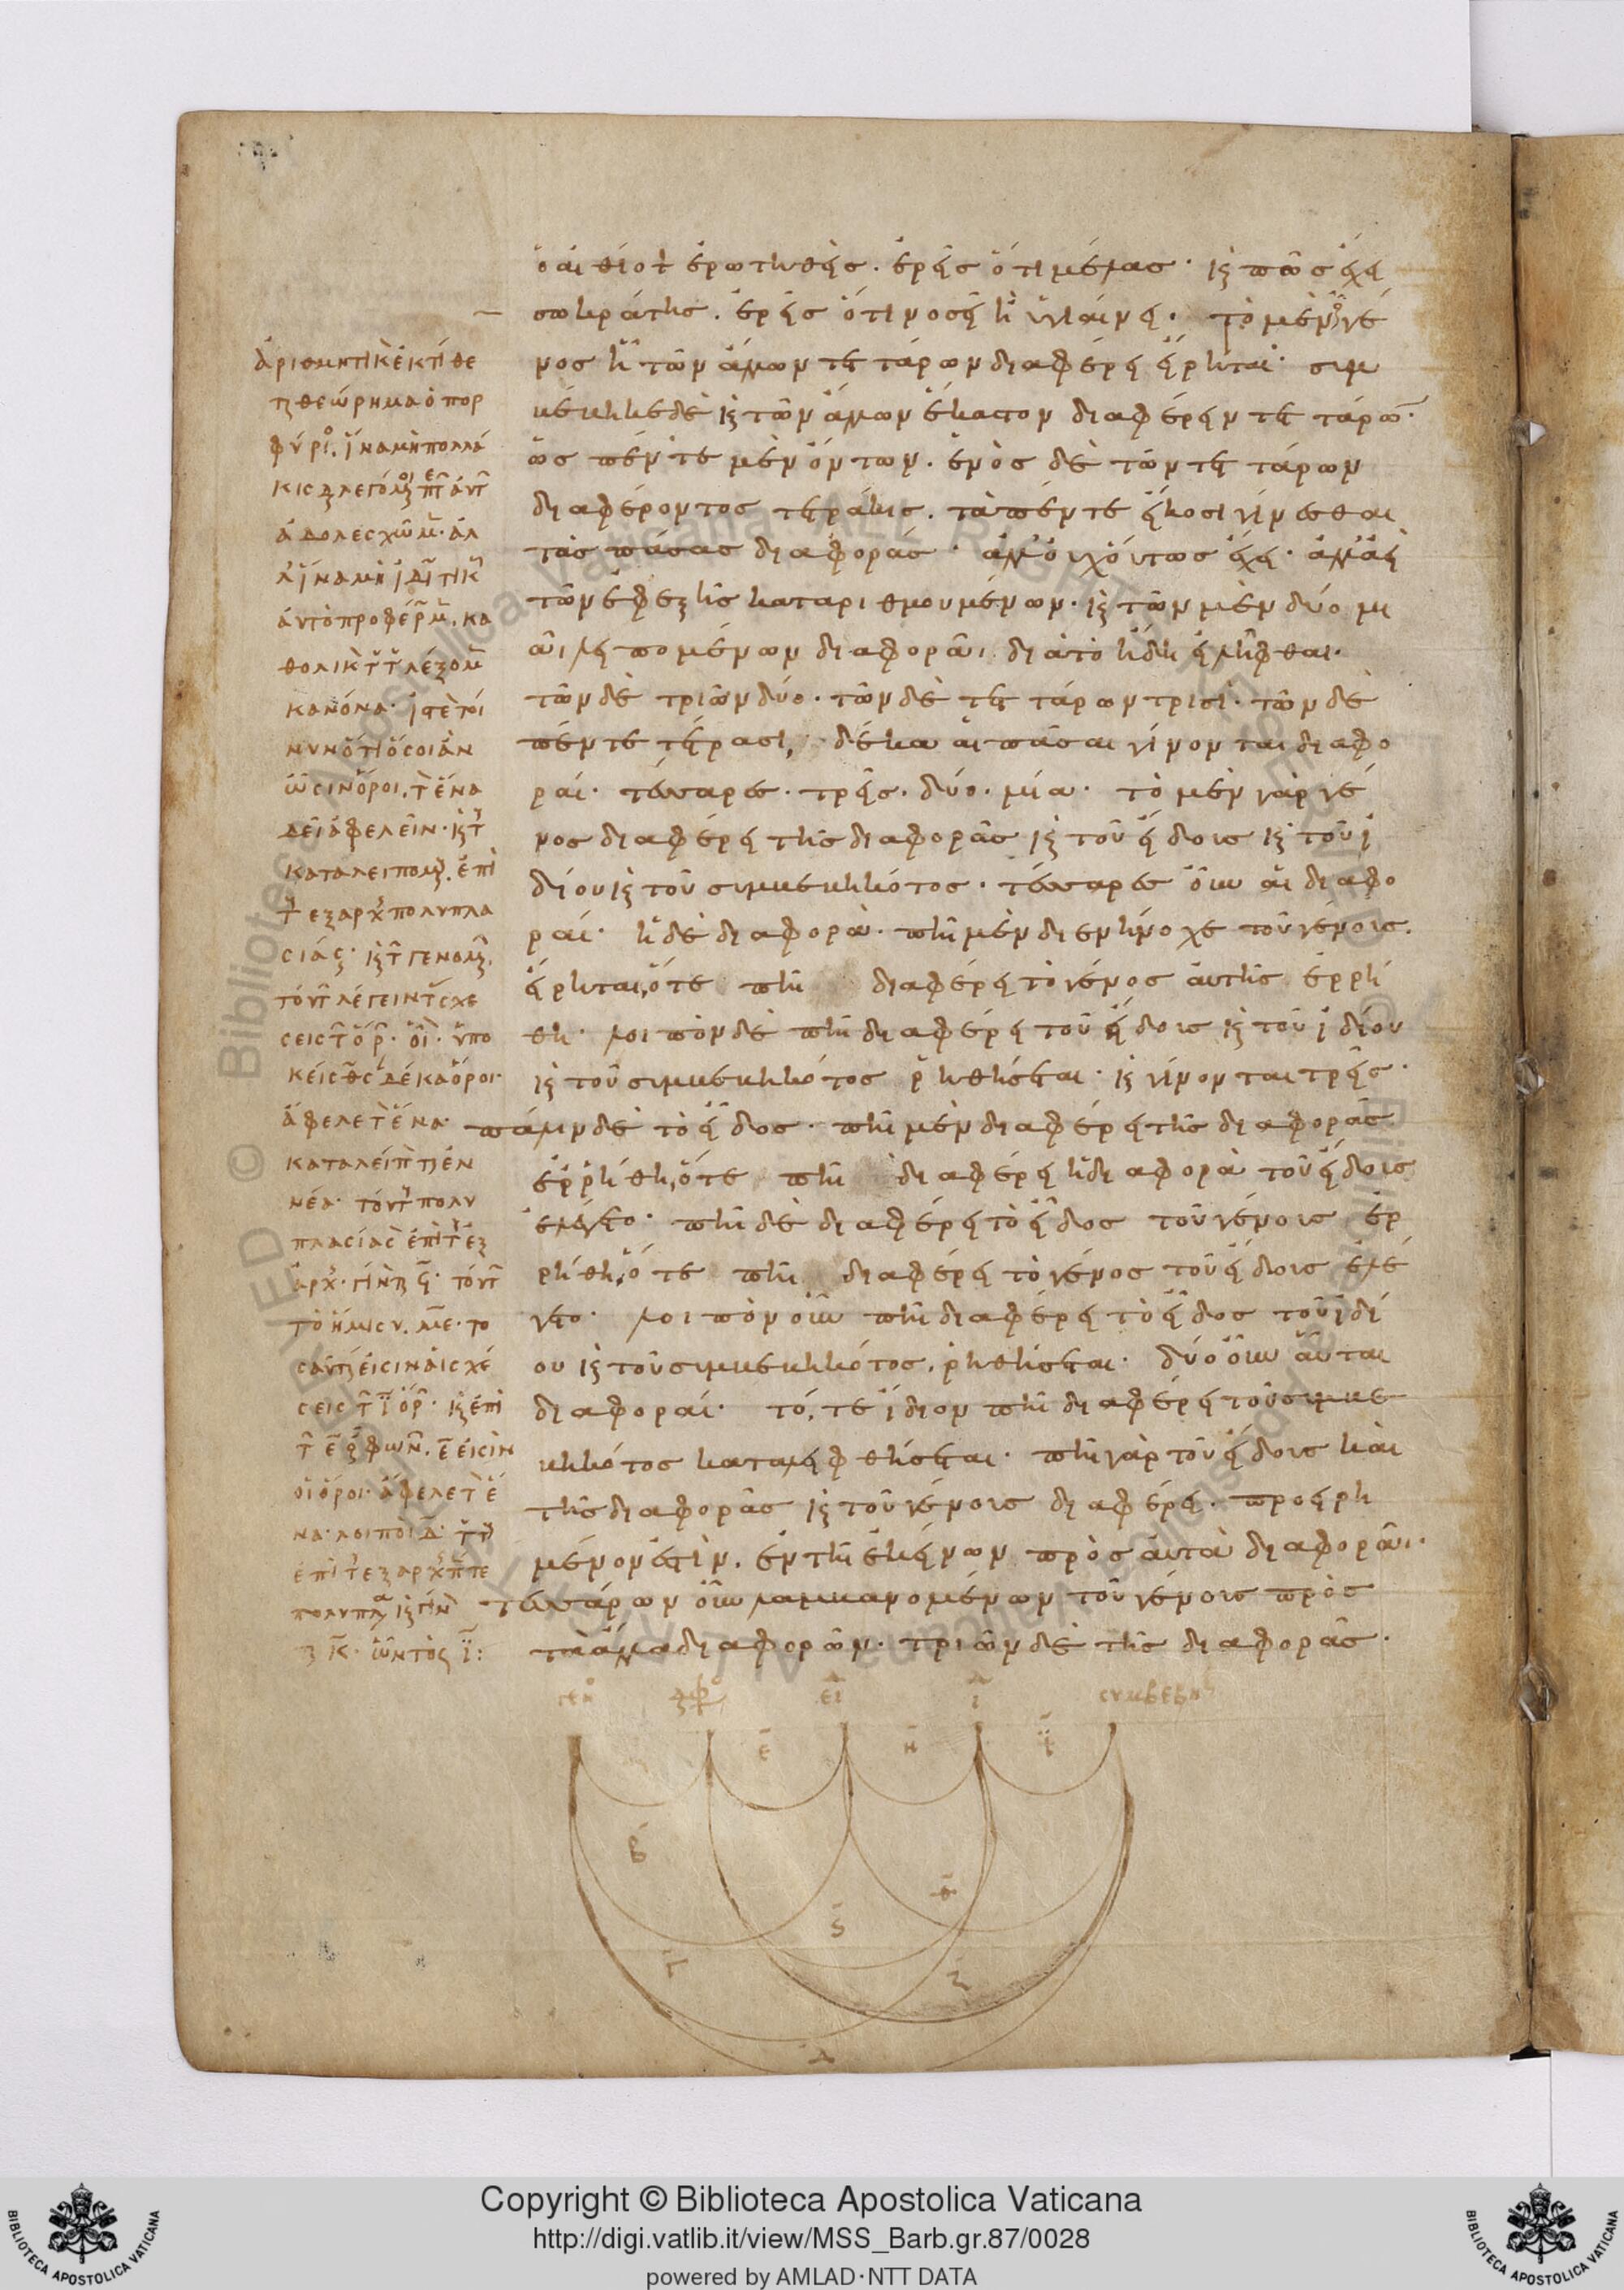 ὁ αἰθίοψ ἐρωτηθεὶς. ἐρεῖς ὅτι μέλας· καὶ πῶς ἔχει
σωκράτης. ἐρεῖς ὅτι νοσεῖ ἢ ὑγιαίνει· τὸ μὲν οὖν γέ
νος ᾗ τῶν ἄλλων τεττάρων διαφέρει εἴρηται· συμ
βέβηκε δὲ καὶ τῶν ἄλλων ἕκαστον διαφέρειν τεττάρων·
ὡς πέντε μὲν ὄντων. ἑνὸς δὲ τῶν τεττάρων
διαφέροντος τετράκις. τὰ πέντε εἴκοσι γίνεσθαι
τὰς πάσας διαφοράς· ἀλλ' οὐχ οὕτως ἔχει· ἀλλ' ἀεὶ
τῶν ἐφεξῆς καταριθμουμένων· καὶ τῶν μὲν δύο μι
ᾶι λειπομένων διαφορᾶι διὰ τὸ ἤδη εἰλῆφθαι·
τῶν δὲ τριῶν δύο· τῶν δὲ τεττάρων τρισί· τῶν δὲ
πέντε τέτρασι, δέκα αἱ πᾶσαι γίνονται διαφο
ραί· τέσσαρες· τρεῖς· δύο· μία· τὸ μὲν γὰρ γέ
νος διαφέρει τῆς διαφορᾶς καὶ τοῦ εἴδους καὶ τοῦ ἰ
δίου καὶ τοῦ συμβεβηκότος· τέσσαρες οὖν αἱ διαφο
ραί· ἡ δὲ διαφορὰ· πῆ μὲν διενήνοχε τοῦ γένους.
εἴρηται, ὅτε πῆ διαφέρει τὸ γένος αὐτῆς ἐρρή
θη· λοιπὸν δὲ πῆ διαφέρει τοῦ εἴδους καὶ τοῦ ἰδίου
καὶ τοῦ συμβεβηκότος ῥηθήσεται· καὶ γίνονται τρεῖς·
πάλιν δὲ τὸ εἶδος· πῆ μὲν διαφέρει τῆς διαφορᾶς
ἐρρήθη, ὅτε πῆ διαφέρει ἡ διαφορὰ τοῦ εἴδους
ἐλέγετο· πῆ δὲ διαφέρει τὸ εἶδος τοῦ γένους ἐρ
ρήθη, ὅτε πῆ διαφέρει τὸ γένος τοῦ εἴδους ἐλέ
γετο· λοιπὸν οὖν πῆ διαφέρει τὸ εἶδος τοῦ ἰδί
ου καὶ τοῦ συμβεβηκότος, ῥηθήσεται· δύο οὖν αὗται
διαφοραί· τό, τε ἴδιον πῆ διαφέρει τοῦ συμβε
βηκότος καταλειφθήσεται· πῆ γὰρ τοῦ εἴδους καὶ
τῆς διαφορᾶς καὶ τοῦ γένους διαφέρει. προειρη
μένον ἐστὶν, ἐν τῆ ἐκείνων πρὸς αὐτὰ διαφορᾶι·
τεσσάρων οὖν λαμβανομένων τοῦ γένους πρὸς
τὰ ἄλλα διαφορῶν· τριῶν δὲ τῆς διαφορᾶς·
ἀριθμητικὸν ἐκτίθε
ται θεώρημα ὁ πορ
φύριος. ἵνα μὴ πολλά
ἀδολεσχῶμεν· ἀλ
λ' ἵνα μὴ
αὐτὸ προφέρωμεν. κα
κανόνα· ἰστέον τοί
νυν ὅτι ὅσοι ἂν
ὦσιν ὅροι, τὸν ἕνα
δεῖ ἀφελεῖν· καὶ τοὺς
καταλειπομένους, ἐπὶ
τοὺς ἐξ ἀρχῆς πολυπλα
κείσθωσαν δέκα ὅροι·
ἄφελε τὸν ἕνα·
καταλείπονται ἐν
νέα· τούτους πολυ
πλασίασον ἐπὶ τοὺς ἐξ
ἀρχῆς· γίνονται ϙ· τούτων
τὸ ἥμισυ. με· το
σαῦταί εἰσιν αἱ σχέ
σεις τῶν ι ὅρων· καὶ ἐπὶ
τῶν ε φωνῶν. ε εἰσὶν
οἱ ὅροι· ἄφελε τὸν ἕ
να· λοιποὶ δ· τούτους
ἐπὶ τοὺς ἐξ ἀρχῆς πέντε
κ· ὧν τὸ ἥμισυ ι:
συμβεβηκός
ε η ι
β
θ
ς
γ ζ
δ
Copyright © Biblioteca Apostolica Vaticana
http://digi.vatlib.it/view/MSS_Barb.gr.87/0028
powered by AMLAD·NTT DATA
BIBLIOTECA APOSTOLICA VATICANA
BIBLIOTECA APOSTOLICA VATICANA